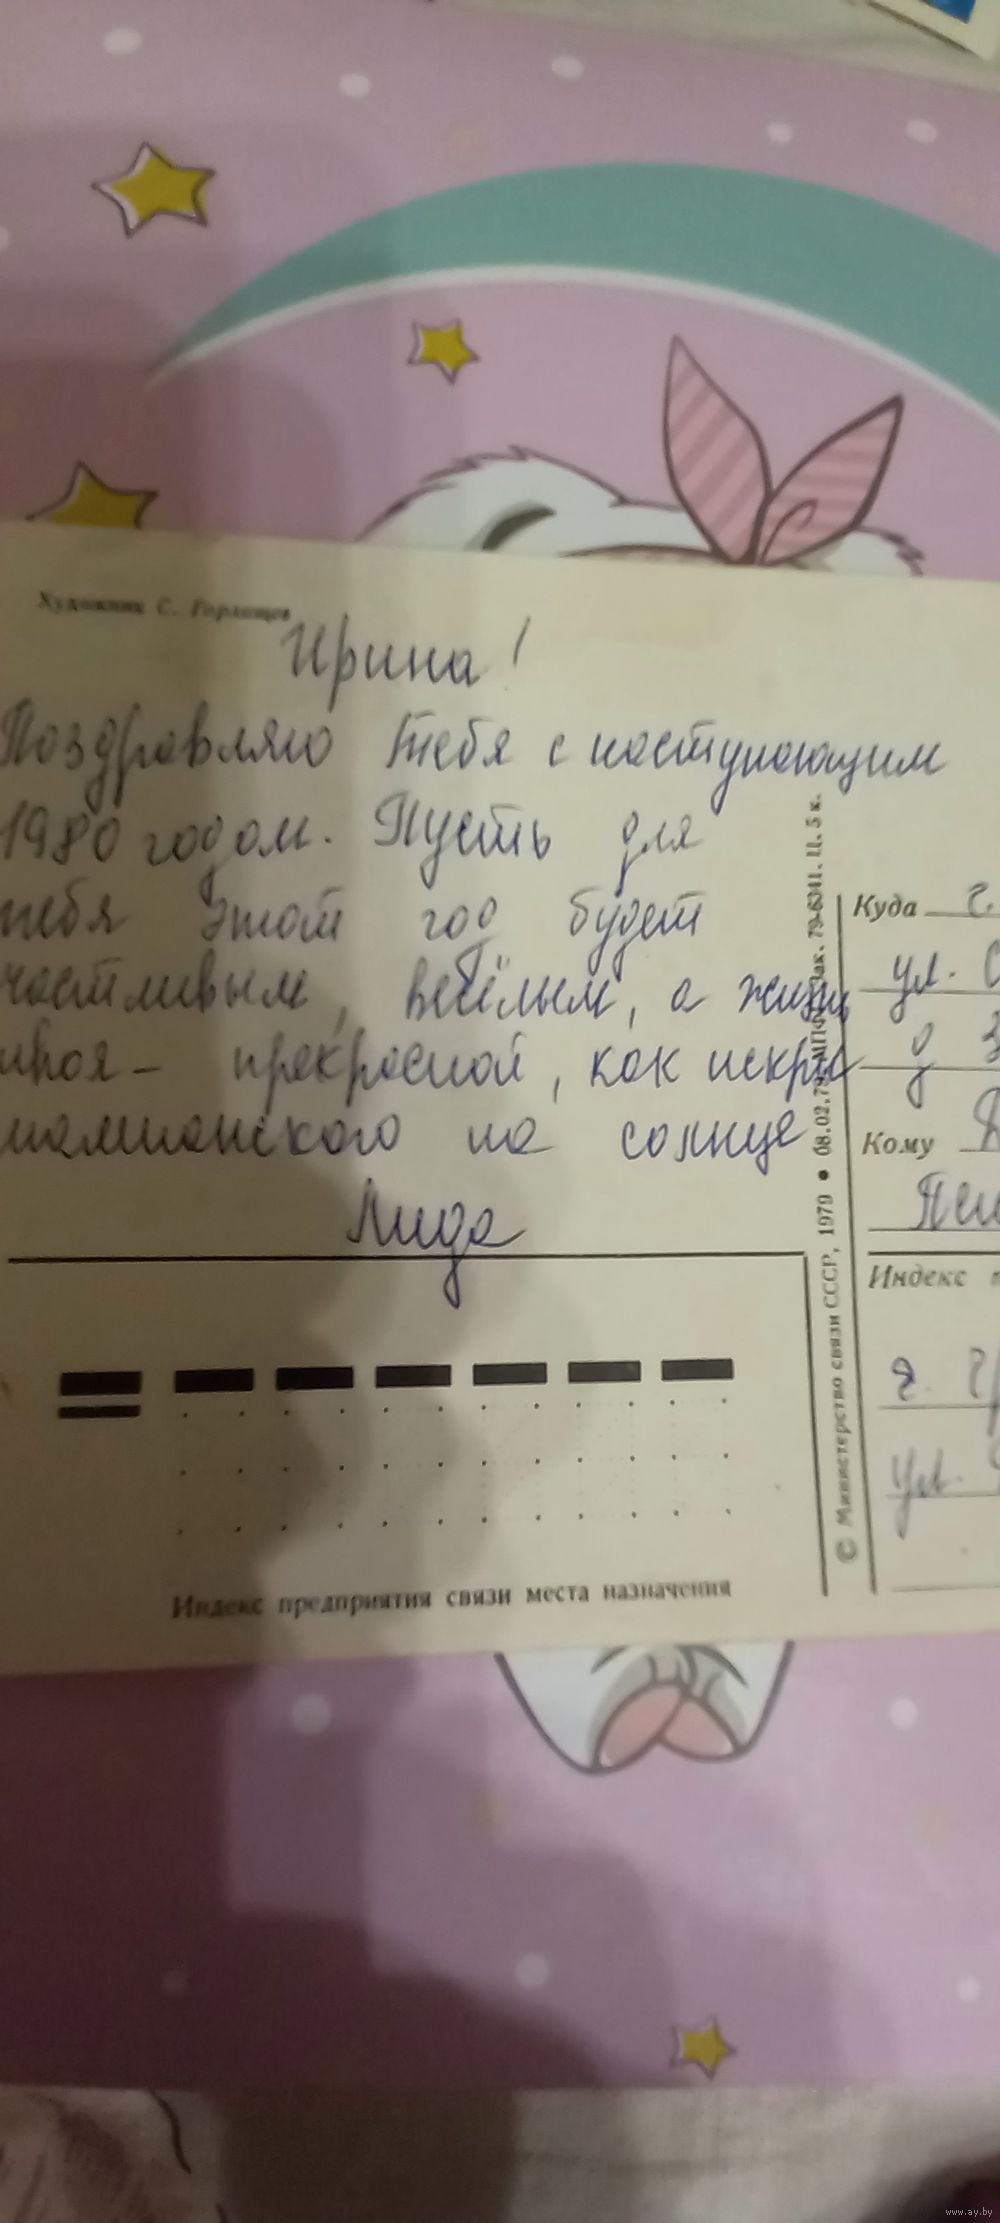 Художник С. Горлищев
Ирина!
Поздравляю тебя с наступающим
1980 годом. Пусть для
тебя этот год будет
частливым, весёлым, а жизнь
твоя - прекрасной, как искры
шампанского на солнце
Лида
Индекс предприятия связи места назначения
© Министерство связи СССР, 1979 ● 08.02.79. МПФГ. Зак. 79-6341. Ц. 5 к.
Куда г.
ул.
д 3
Кому
Индекс п
г.
ул.
www.ay.by